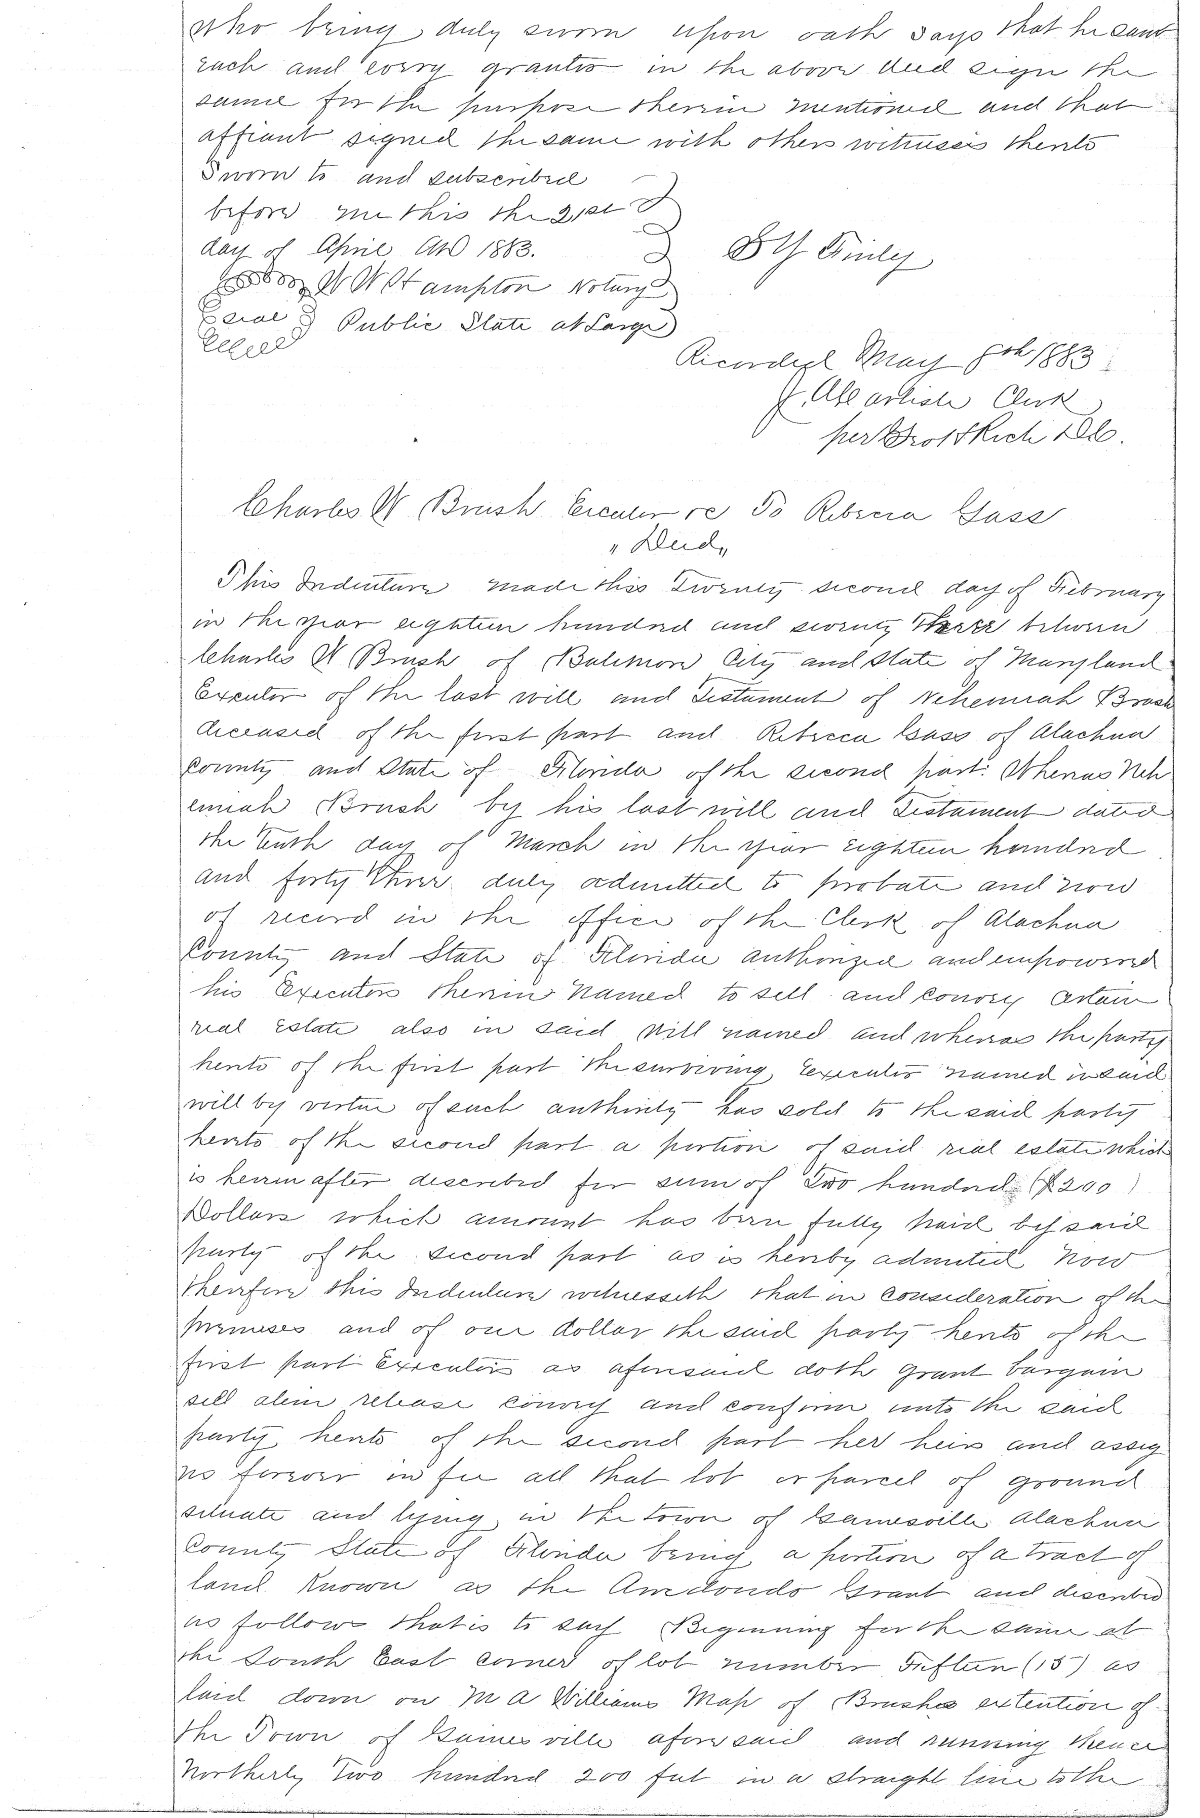 who being duly sworn upon oath says that he saw
each and every grantor in the above deed sign the
same for the purpose therein mentioned and that
affiant signed the same with others witnesses thereto
Sworn to and subscribed
before me this the 21st
day of April AD 1883.
B Y Finley
W W Hampton Notary
Seal Public State at Large
Recorded May 8th 1883
J. A Carlisle Clerk
per D.C.
Charles W Brush Executor &c To Rebecca Gass
"Deed"
This Indenture made this Twenty second day of February
in the year eighteen hundred and seventy three between
Charles W Brush of Baltimore City and State of Maryland
Executor of the last will and Testament of Nehemiah Brush
deceased of the first part and Rebecca Gass of Alachua
County and State of Florida of the second part: Whereas Neh
emiah Brush by his last will and Testament dated
the tenth day of March in the year eighteen hundred
and forty three duly admitted to probate and now
of record in the office of the Clerk of Alachua
County and State of Florida authorized and empowered
his Executors therein named to sell and convey certain
real estate also in said will named and whereas the party
hereto of the first part the surviving Executor named in said
will by virtue of such authority has sold to the said party
hereto of the second part a portion of said real estate which
is herein after described for sum of Two hundred ($200)
Dollars which amount has been fully paid by said
party of the second part as is hereby admitted Now
therefore this Indenture witnesseth that in consideration of the
premises and of one dollar the said party hereto of the
first part Executor as aforesaid doth grant bargain
sell alien release convey and confirm unto the said
party hereto of the second part her heirs and assig
ns forever in fee all that lot or parcel of ground
situate and lying in the town of Gainesville Alachua
County State of Florida being a portion of a tract of
land known as the Arredondo Grant and described
as follows that is to say Beginning for the same at
the South East corner of lot number Fifteen (15) as
laid down on M A Williams Map of Brushes extention of
the Town of Gainesville aforesaid and running thence
Northerly Two hundred 200 feet in a straight line to the